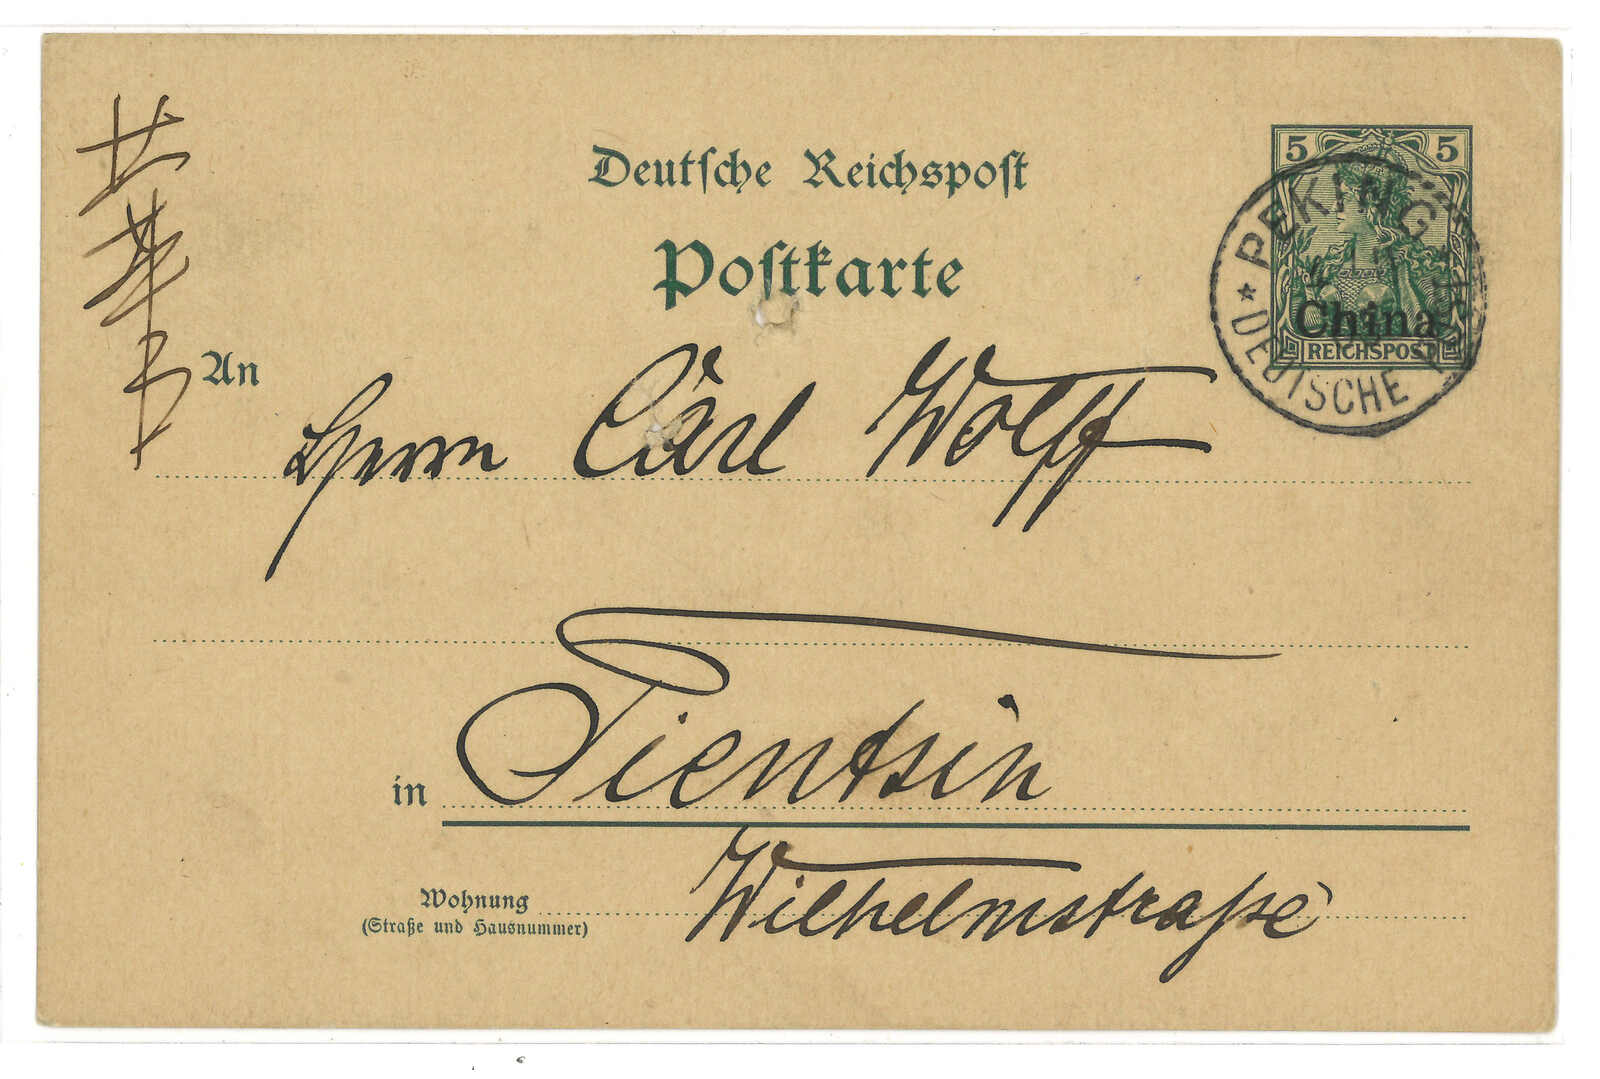 Deutsche Reichspost
Postkarte
5 5
China
REICHSPOST
PEKING
DEUTSCHE
An Herrn Carl Wolff
in Tientsin
Wohnung Wilhelmstraße
(Straße und Hausnummer)